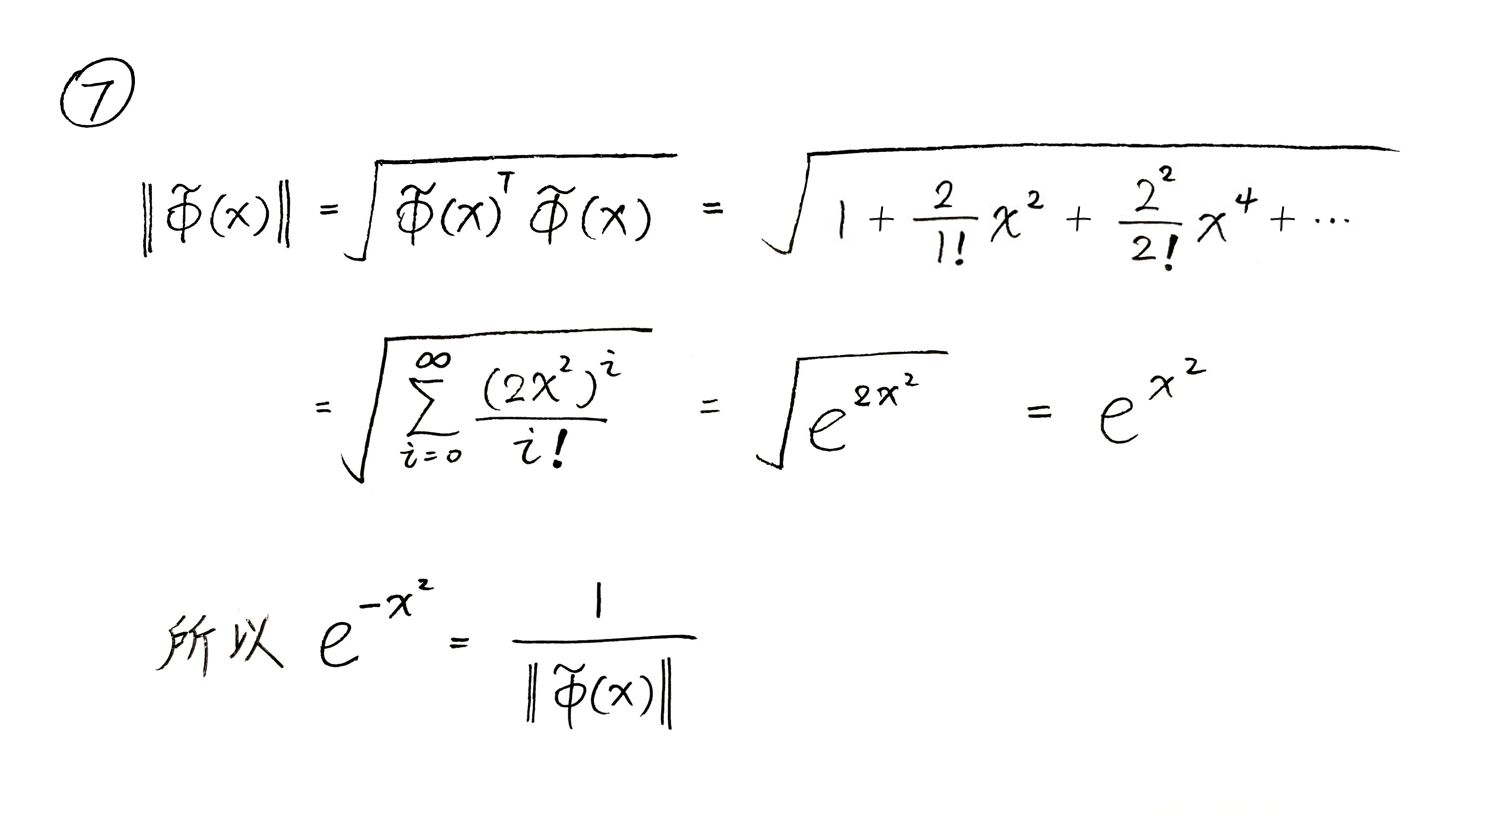 ⑦
‖Φ̃(x)‖ = √(Φ̃(x)ᵀ Φ̃(x)) = √(1 + 2/1! x² + 2²/2! x⁴ + ⋯)
= √(∑_{i=0}^{∞} (2x²)ⁱ/i!) = √(e^{2x²}) = e^{x²}
所以 e^{-x²} = 1/‖Φ̃(x)‖